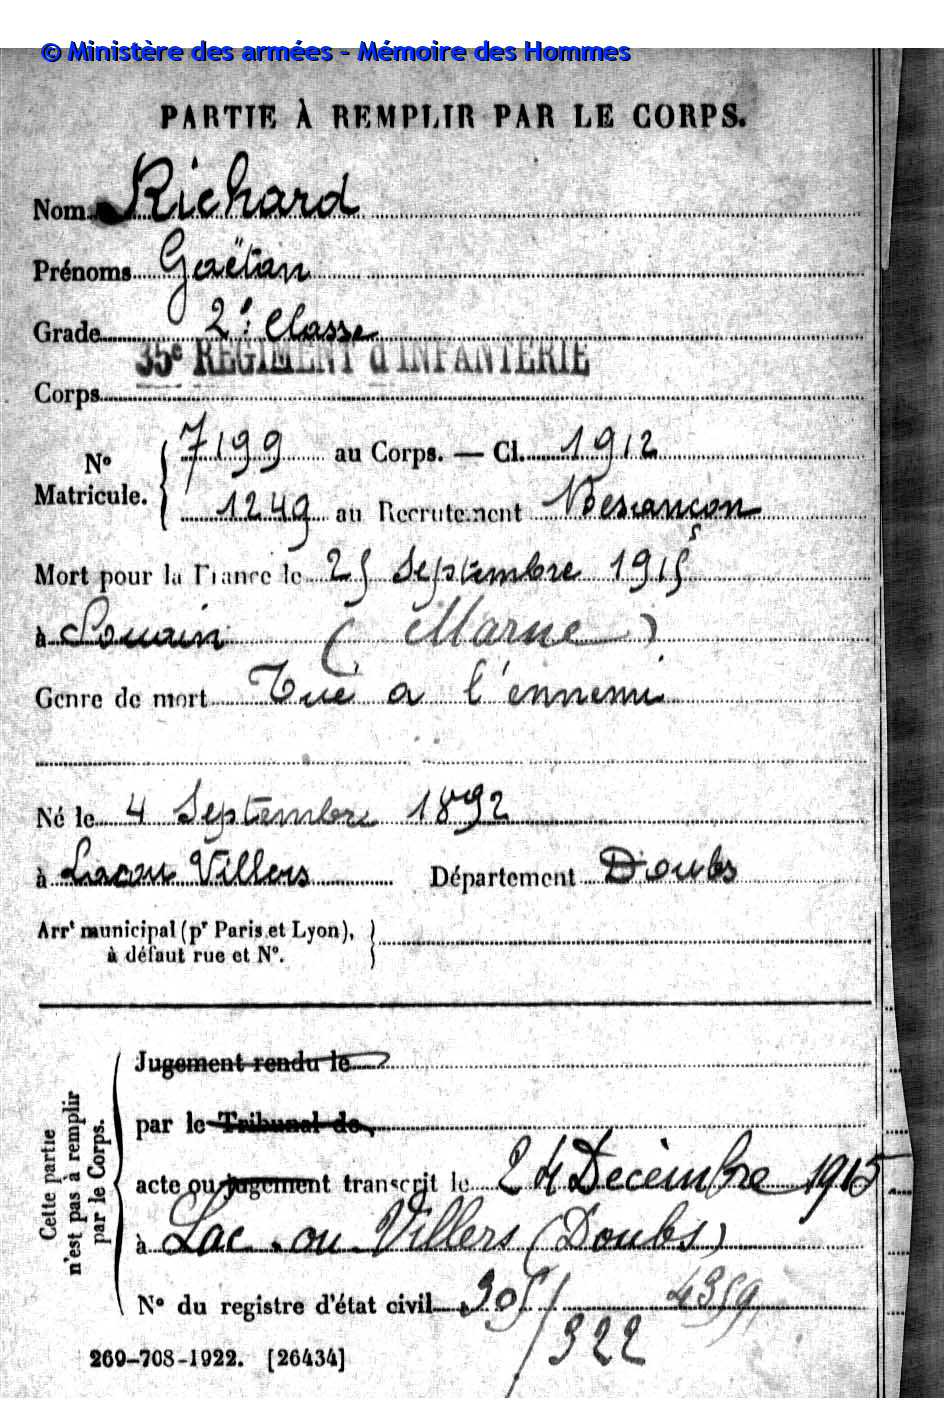 © Ministère des armées - Mémoire des Hommes
PARTIE À REMPLIR PAR LE CORPS.
Nom Richard
Prénoms Gaëtan
Grade 2e Classe
35e REGIMENT d'INFANTERIE
Corps
N° Matricule. { 7199 au Corps. — Cl. 1912
1249 au Recrutement Besançon
Mort pour la France le 25 Septembre 1915
à Souain (Marne)
Genre de mort Tué a l'ennemi
Né le 4 Septembre 1892
à Lacou Villers Département Doubs
Arrt municipal (pr Paris et Lyon),
à défaut rue et N°.
Cette partie n'est pas à remplir par le Corps.
Jugement rendu le
par le Tribunal de
acte ou jugement transcrit le 24 Decèmbre 1915
à Lac. ou Villers (Doubs)
N° du registre d'état civil 4359
/322
269-708-1922. [26434]